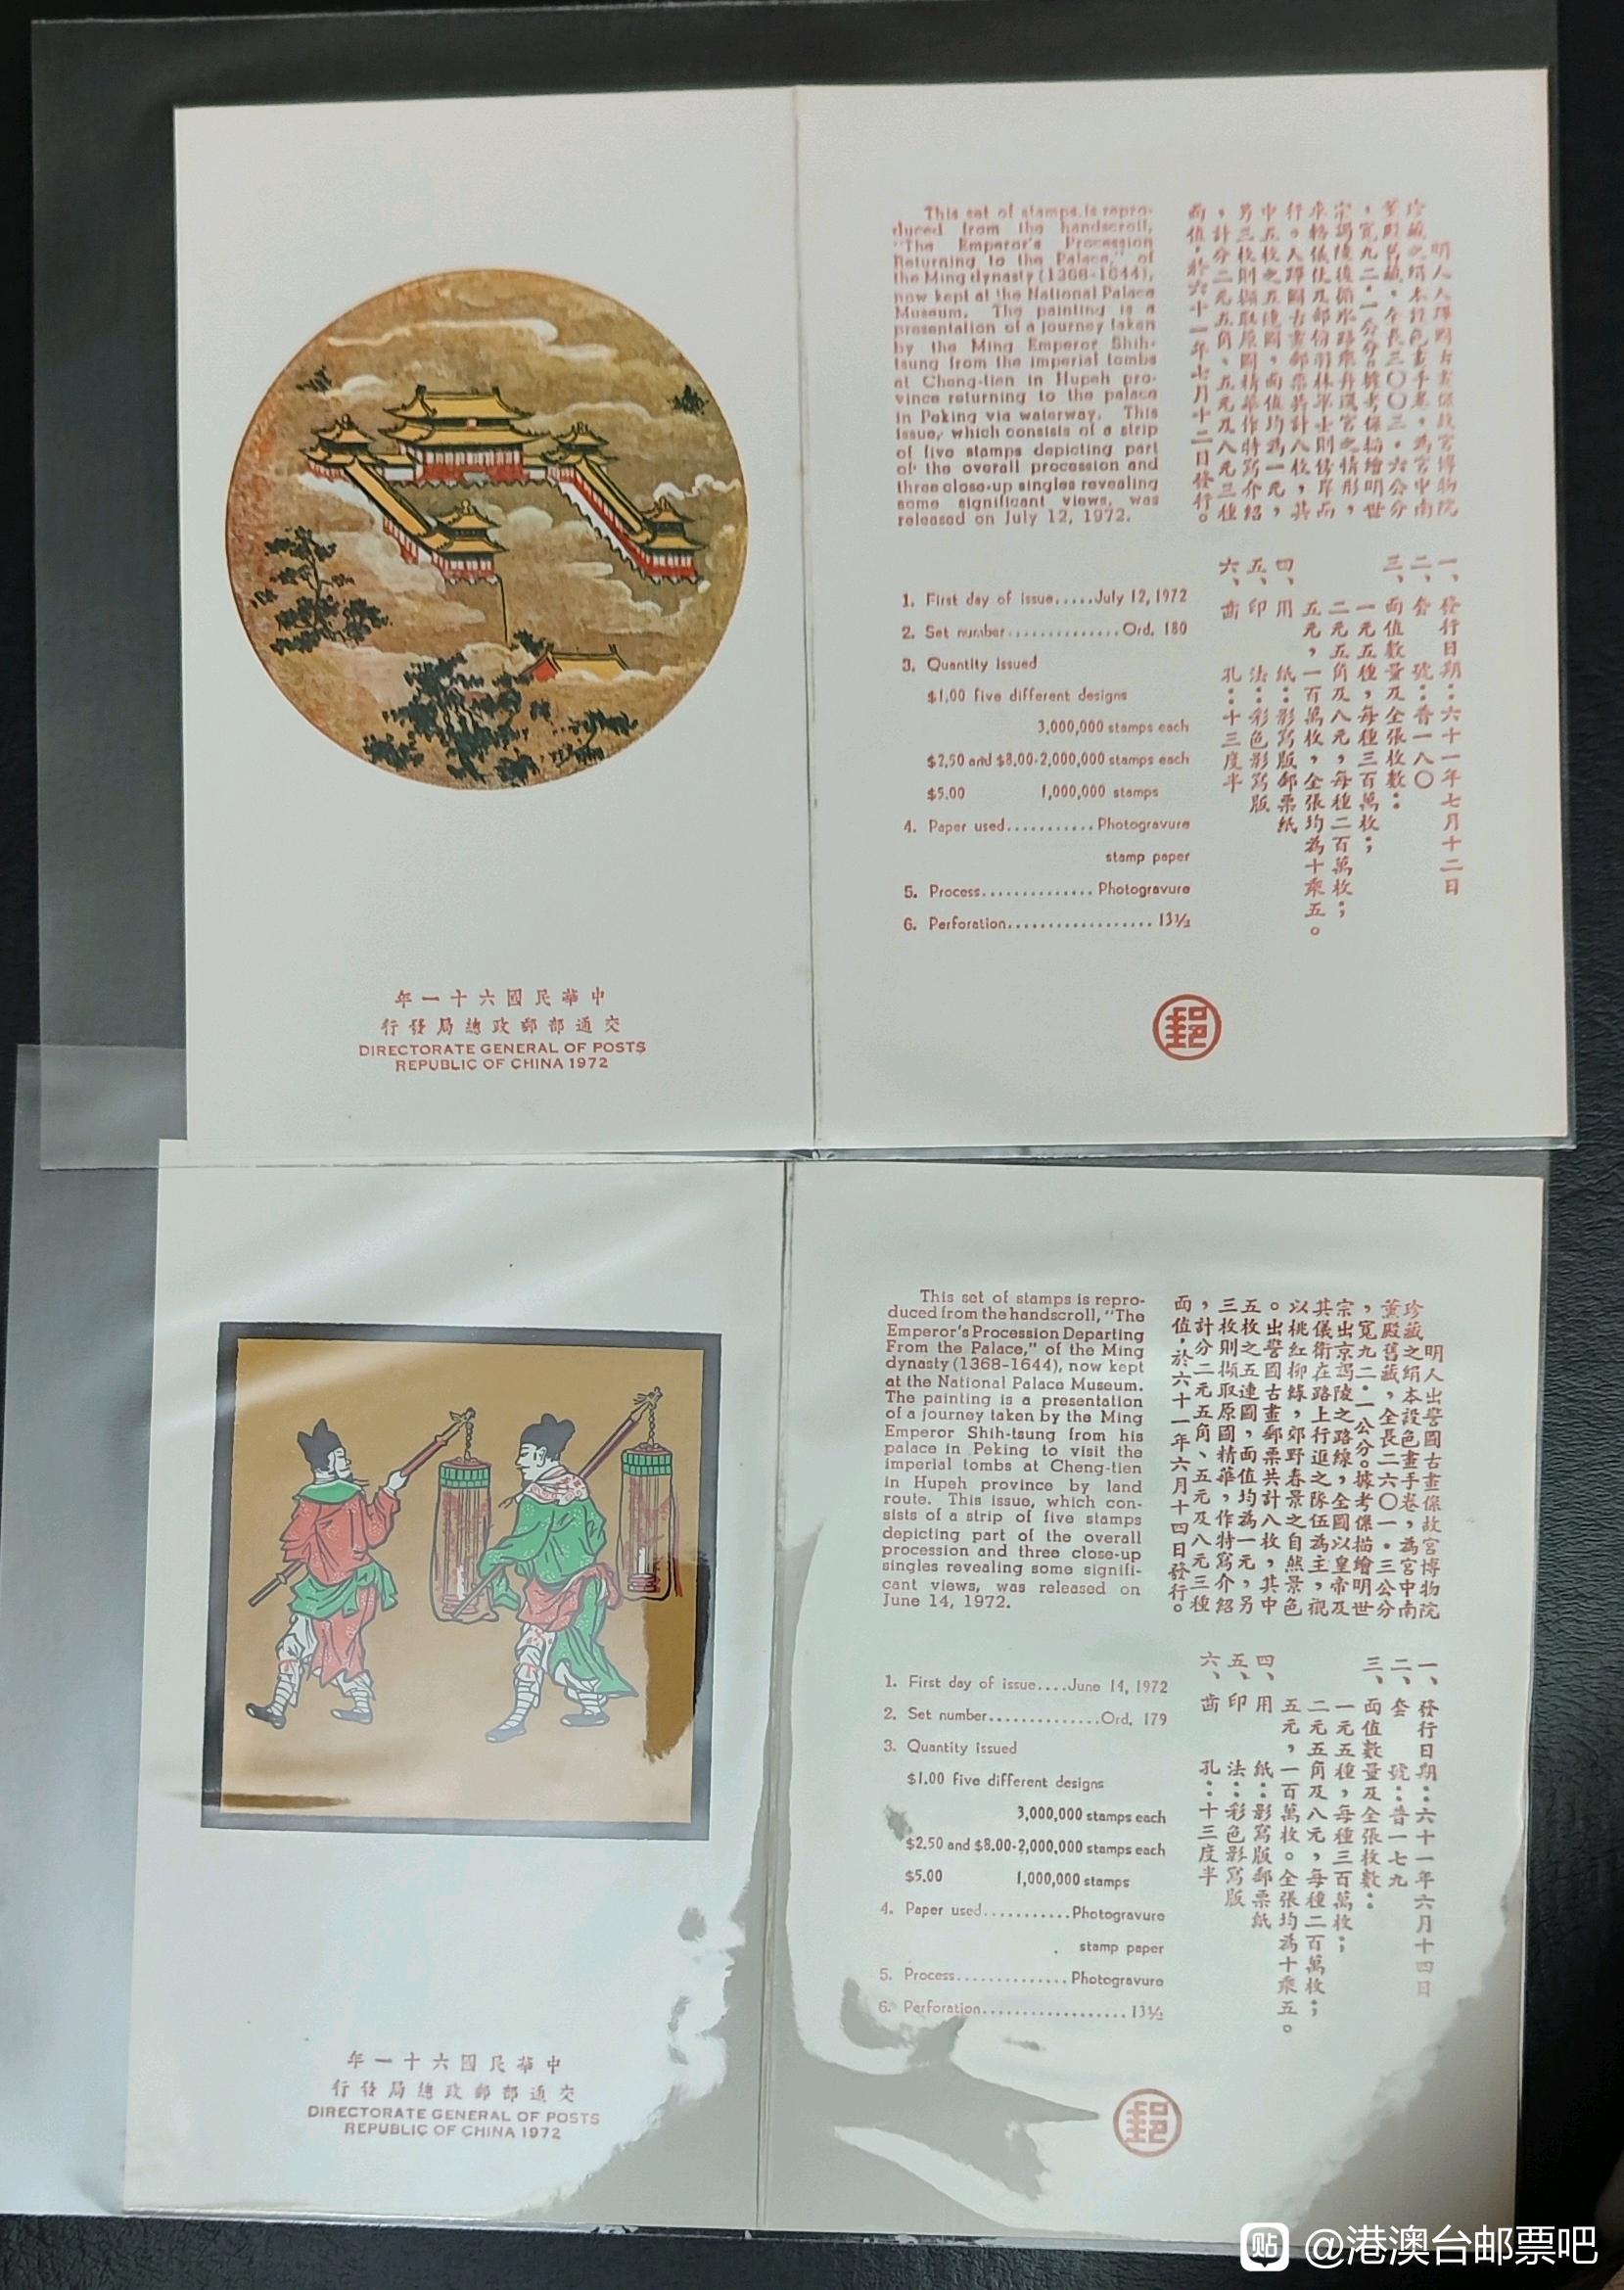 中華民國六十一年
交通部郵政總局發行
DIRECTORATE GENERAL OF POSTS
REPUBLIC OF CHINA 1972
This set of stamps is repro-
duced from the handscroll,
"The Emperor's Procession
Returning to the Palace," of
the Ming dynasty (1368-1644),
now kept at the National Palace
Museum. The painting is a
presentation of a journey taken
by the Ming Emperor Shih-
tsung from the imperial tombs
at Cheng-tien in Hupeh pro-
vince returning to the palace
in Peking via waterway. This
issue, which consists of a strip
of five stamps depicting part
of the overall procession and
three close-up singles revealing
some significant views, was
released on July 12, 1972.
明人入蹕圖古畫係故宮博物院
珍藏之絹本設色畫手卷,為宮中南
薰殿舊藏,全長三〇〇三·六公分
,寬九二·一公分。據考係描繪明世
宗謁陵後循水路乘舟還宮之情形,
儀仗及部份羽林軍士則傍岸而
行。入蹕圖古畫郵票共計八枚,其
中五枚之五連圖,面值均為一元,
另三枚則擷取原圖精華作特寫介紹
,計分二元五角、五元及八元三種
面值,於六十一年七月十二日發行。
1. First day of issue.....July 12, 1972
2. Set number..............Ord. 180
3. Quantity issued
$1.00 five different designs
3,000,000 stamps each
$2.50 and $8.00-2,000,000 stamps each
$5.00 1,000,000 stamps
4. Paper used...........Photogravure
stamp paper
5. Process..............Photogravure
6. Perforation..................13½
一、發行日期:六十一年七月十二日
二、套 號:普一八〇
三、面值數量及全張枚數:
一元五種,每種三百萬枚;
二元五角及八元,每種二百萬枚;
五元,一百萬枚,全張均為十乘五。
四、用 紙:影寫版郵票紙
五、印 法:彩色影寫版
六、齒 孔:十三度半
郵
中華民國六十一年
交通部郵政總局發行
DIRECTORATE GENERAL OF POSTS
REPUBLIC OF CHINA 1972
This set of stamps is repro-
duced from the handscroll, "The
Emperor's Procession Departing
From the Palace," of the Ming
dynasty (1368-1644), now kept
at the National Palace Museum.
The painting is a presentation
of a journey taken by the Ming
Emperor Shih-tsung from his
palace in Peking to visit the
imperial tombs at Cheng-tien
in Hupeh province by land
route. This issue, which con-
sists of a strip of five stamps
depicting part of the overall
procession and three close-up
singles revealing some signifi-
cant views, was released on
June 14, 1972.
明人出警圖古畫係故宮博物院
珍藏之絹本設色畫手卷,為宮中南
薰殿舊藏,全長二六〇一·三公分
,寬九二·一公分。據考係描繪明世
宗出京謁陵之路線,全圖以皇帝及
其儀衛在路上行進之隊伍為主,襯
以桃紅柳綠,郊野春景之自然景色
。出警圖古畫郵票共計八枚,其中
五枚之五連圖,面值均為一元,另
三枚則擷取原圖精華,作特寫介紹
,計分二元五角、五元及八元三種
面值,於六十一年六月十四日發行。
1. First day of issue....June 14, 1972
2. Set number..............Ord. 179
3. Quantity issued
$1.00 five different designs
3,000,000 stamps each
$2.50 and $8.00-2,000,000 stamps each
$5.00 1,000,000 stamps
4. Paper used...........Photogravure
stamp paper
5. Process..............Photogravure
6. Perforation..................13½
一、發行日期:六十一年六月十四日
二、套 號:普一七九
三、面值數量及全張枚數:
一元五種,每種三百萬枚;
二元五角及八元,每種二百萬枚;
五元,一百萬枚。全張均為十乘五。
四、用 紙:影寫版郵票紙
五、印 法:彩色影寫版
六、齒 孔:十三度半
郵
貼 @港澳台邮票吧